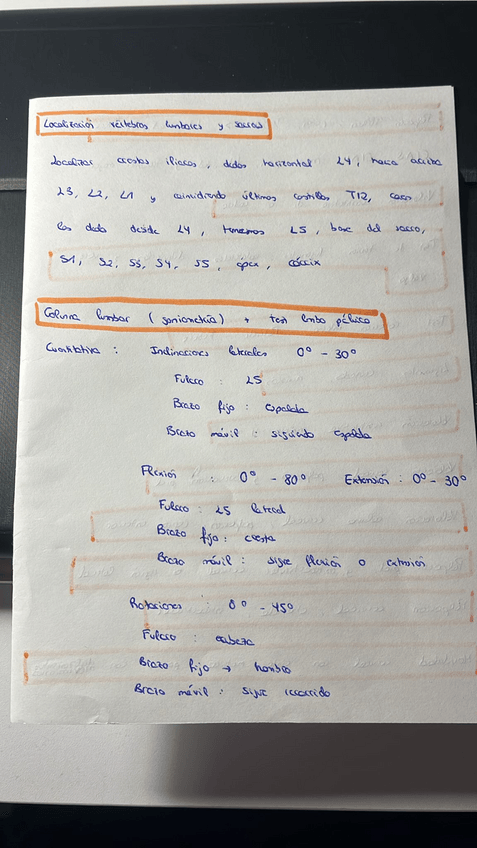 Localización vértebras lumbares y sacras
Localizar crestas iliacas, dedos horizontal L4, hacia arriba
L3, L2, L1 y coincidiendo últimas costillas T12, caes
los dedo desde L4, tenemos L5, base del sacro,
S1, S2, S3, S4, S5, ápex, cóccix
Columna lumbar (goniometría) + test lumbo pélvico
Cuantitativa : Inclinaciones laterales 0º - 30º
Fulcro : L5
Brazo fijo : espalda
Brazo móvil : siguiendo espalda
Flexión : 0º - 80º Extensión : 0º - 30º
Fulcro : L5 lateral
Brazo fijo : cresta
Brazo móvil : sigue flexión o extensión
Rotaciones : 0º - 45º
Fulcro : cabeza
Brazo fijo → hombro
Brazo móvil : sigue recorrido